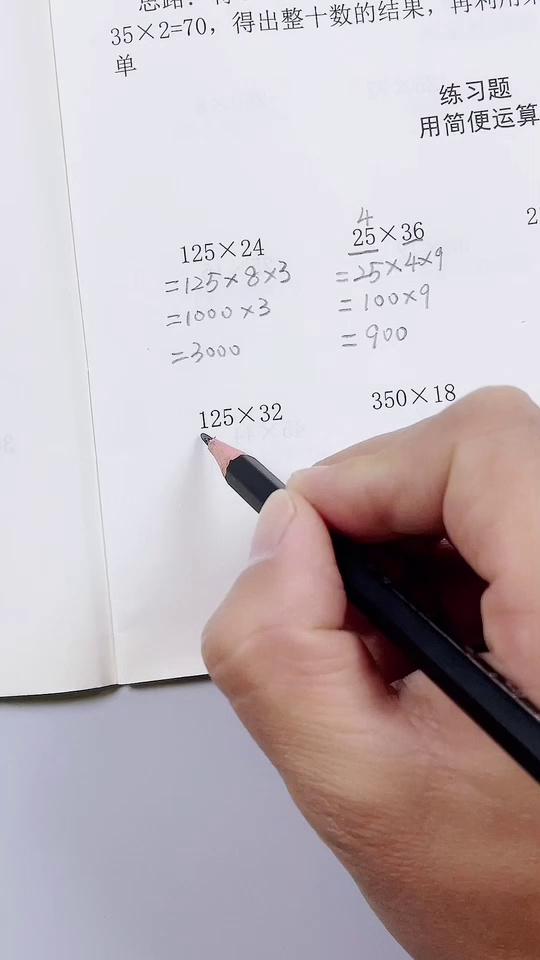 35×2=70，得出整十数的结果，再利用
单
练习题
用简便运算
125×24
=125×8×3
=1000×3
=3000
4
25×36
=25×4×9
=100×9
=900
2
125×32
350×18